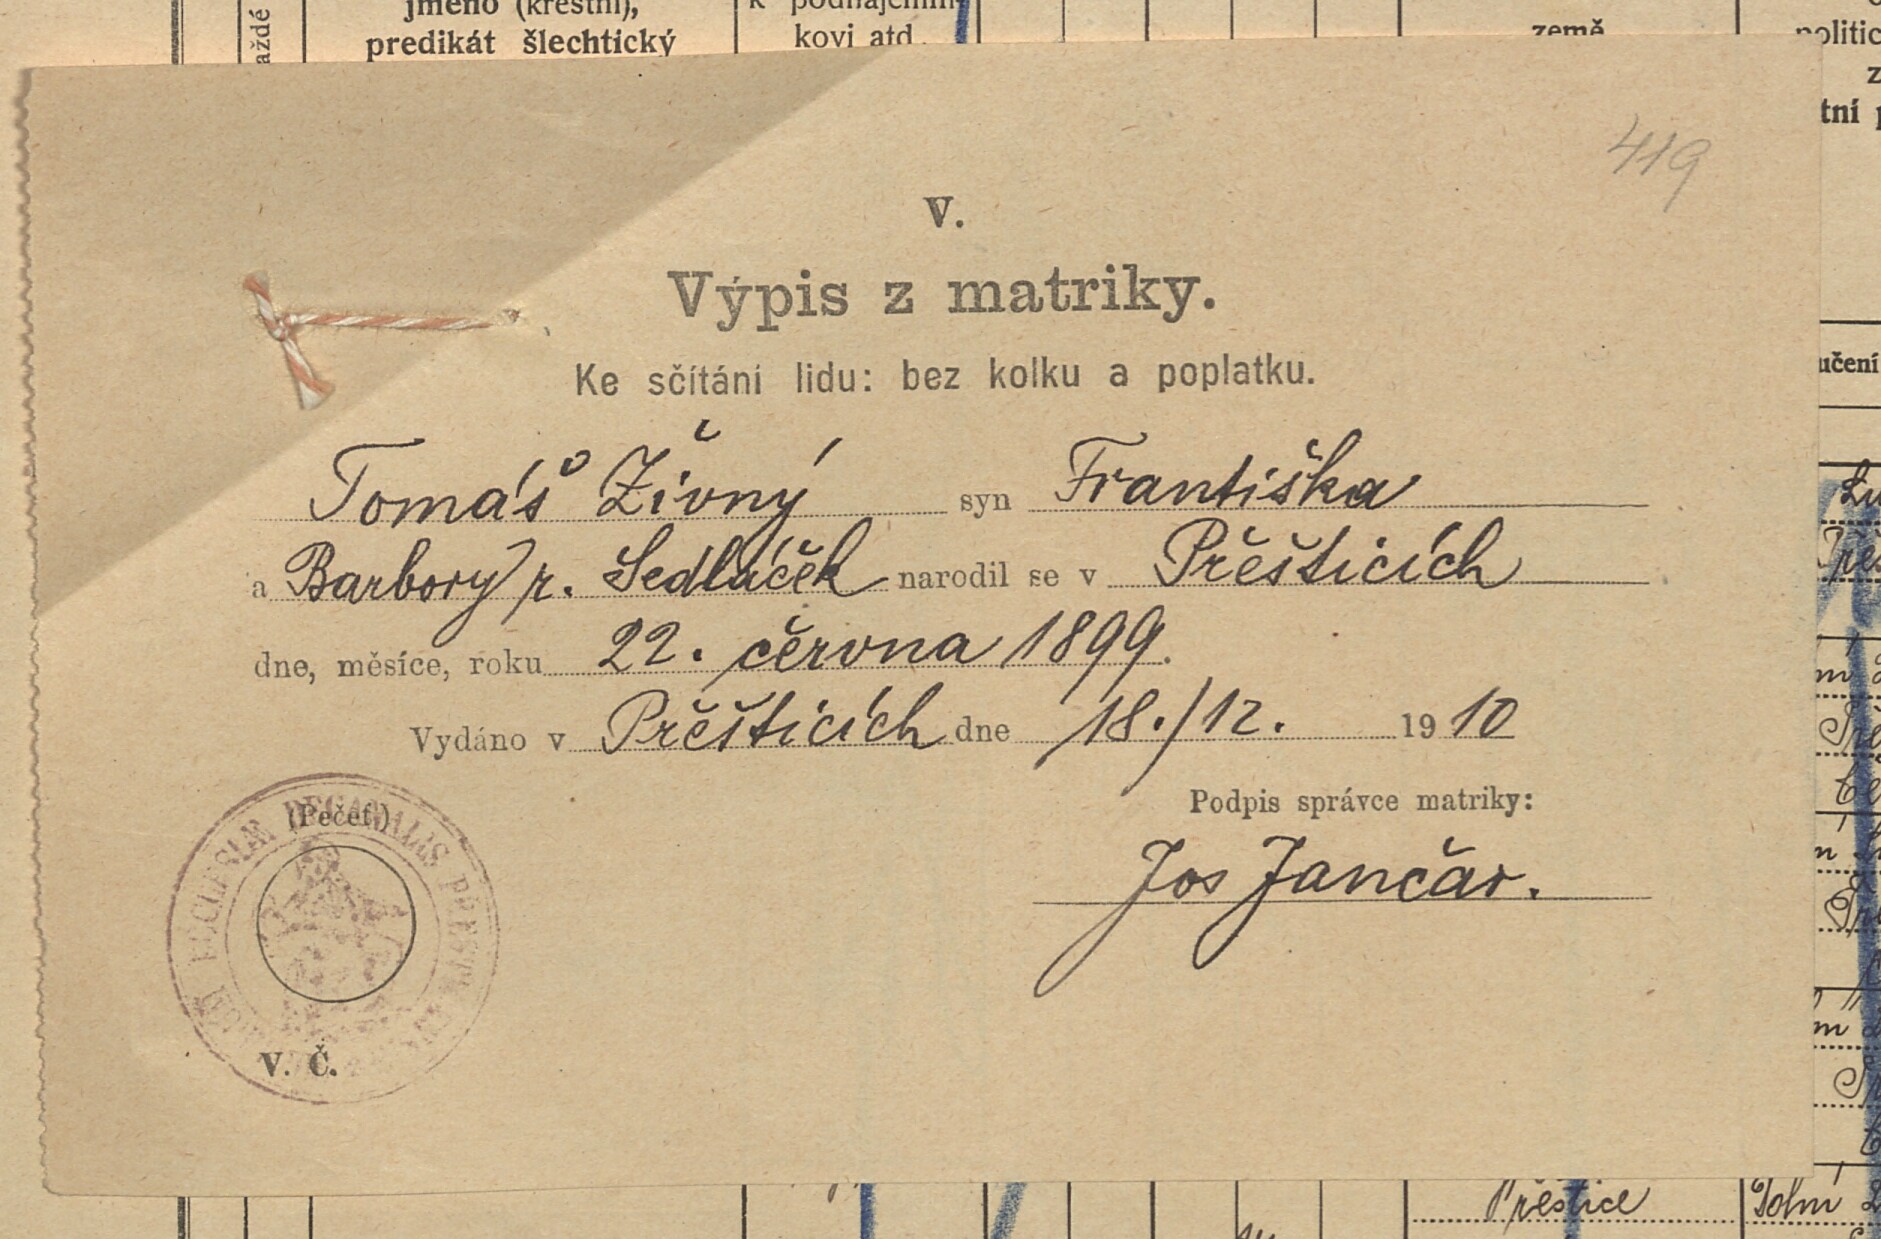 jméno (křestní),
predikát šlechtický
kovi atd.
země
každé
419
V.
Výpis z matriky.
Ke sčítání lidu: bez kolku a poplatku.
Tomáš Živný syn Františka
a Barbory r. Sedláček narodil se v Přešticích
dne, měsíce, roku 22. června 1899.
Vydáno v Přešticích dne 18./12. 1910
(Pečeť.)
Podpis správce matriky:
Jos Jančar.
V. Č.
Přeštice Dolní